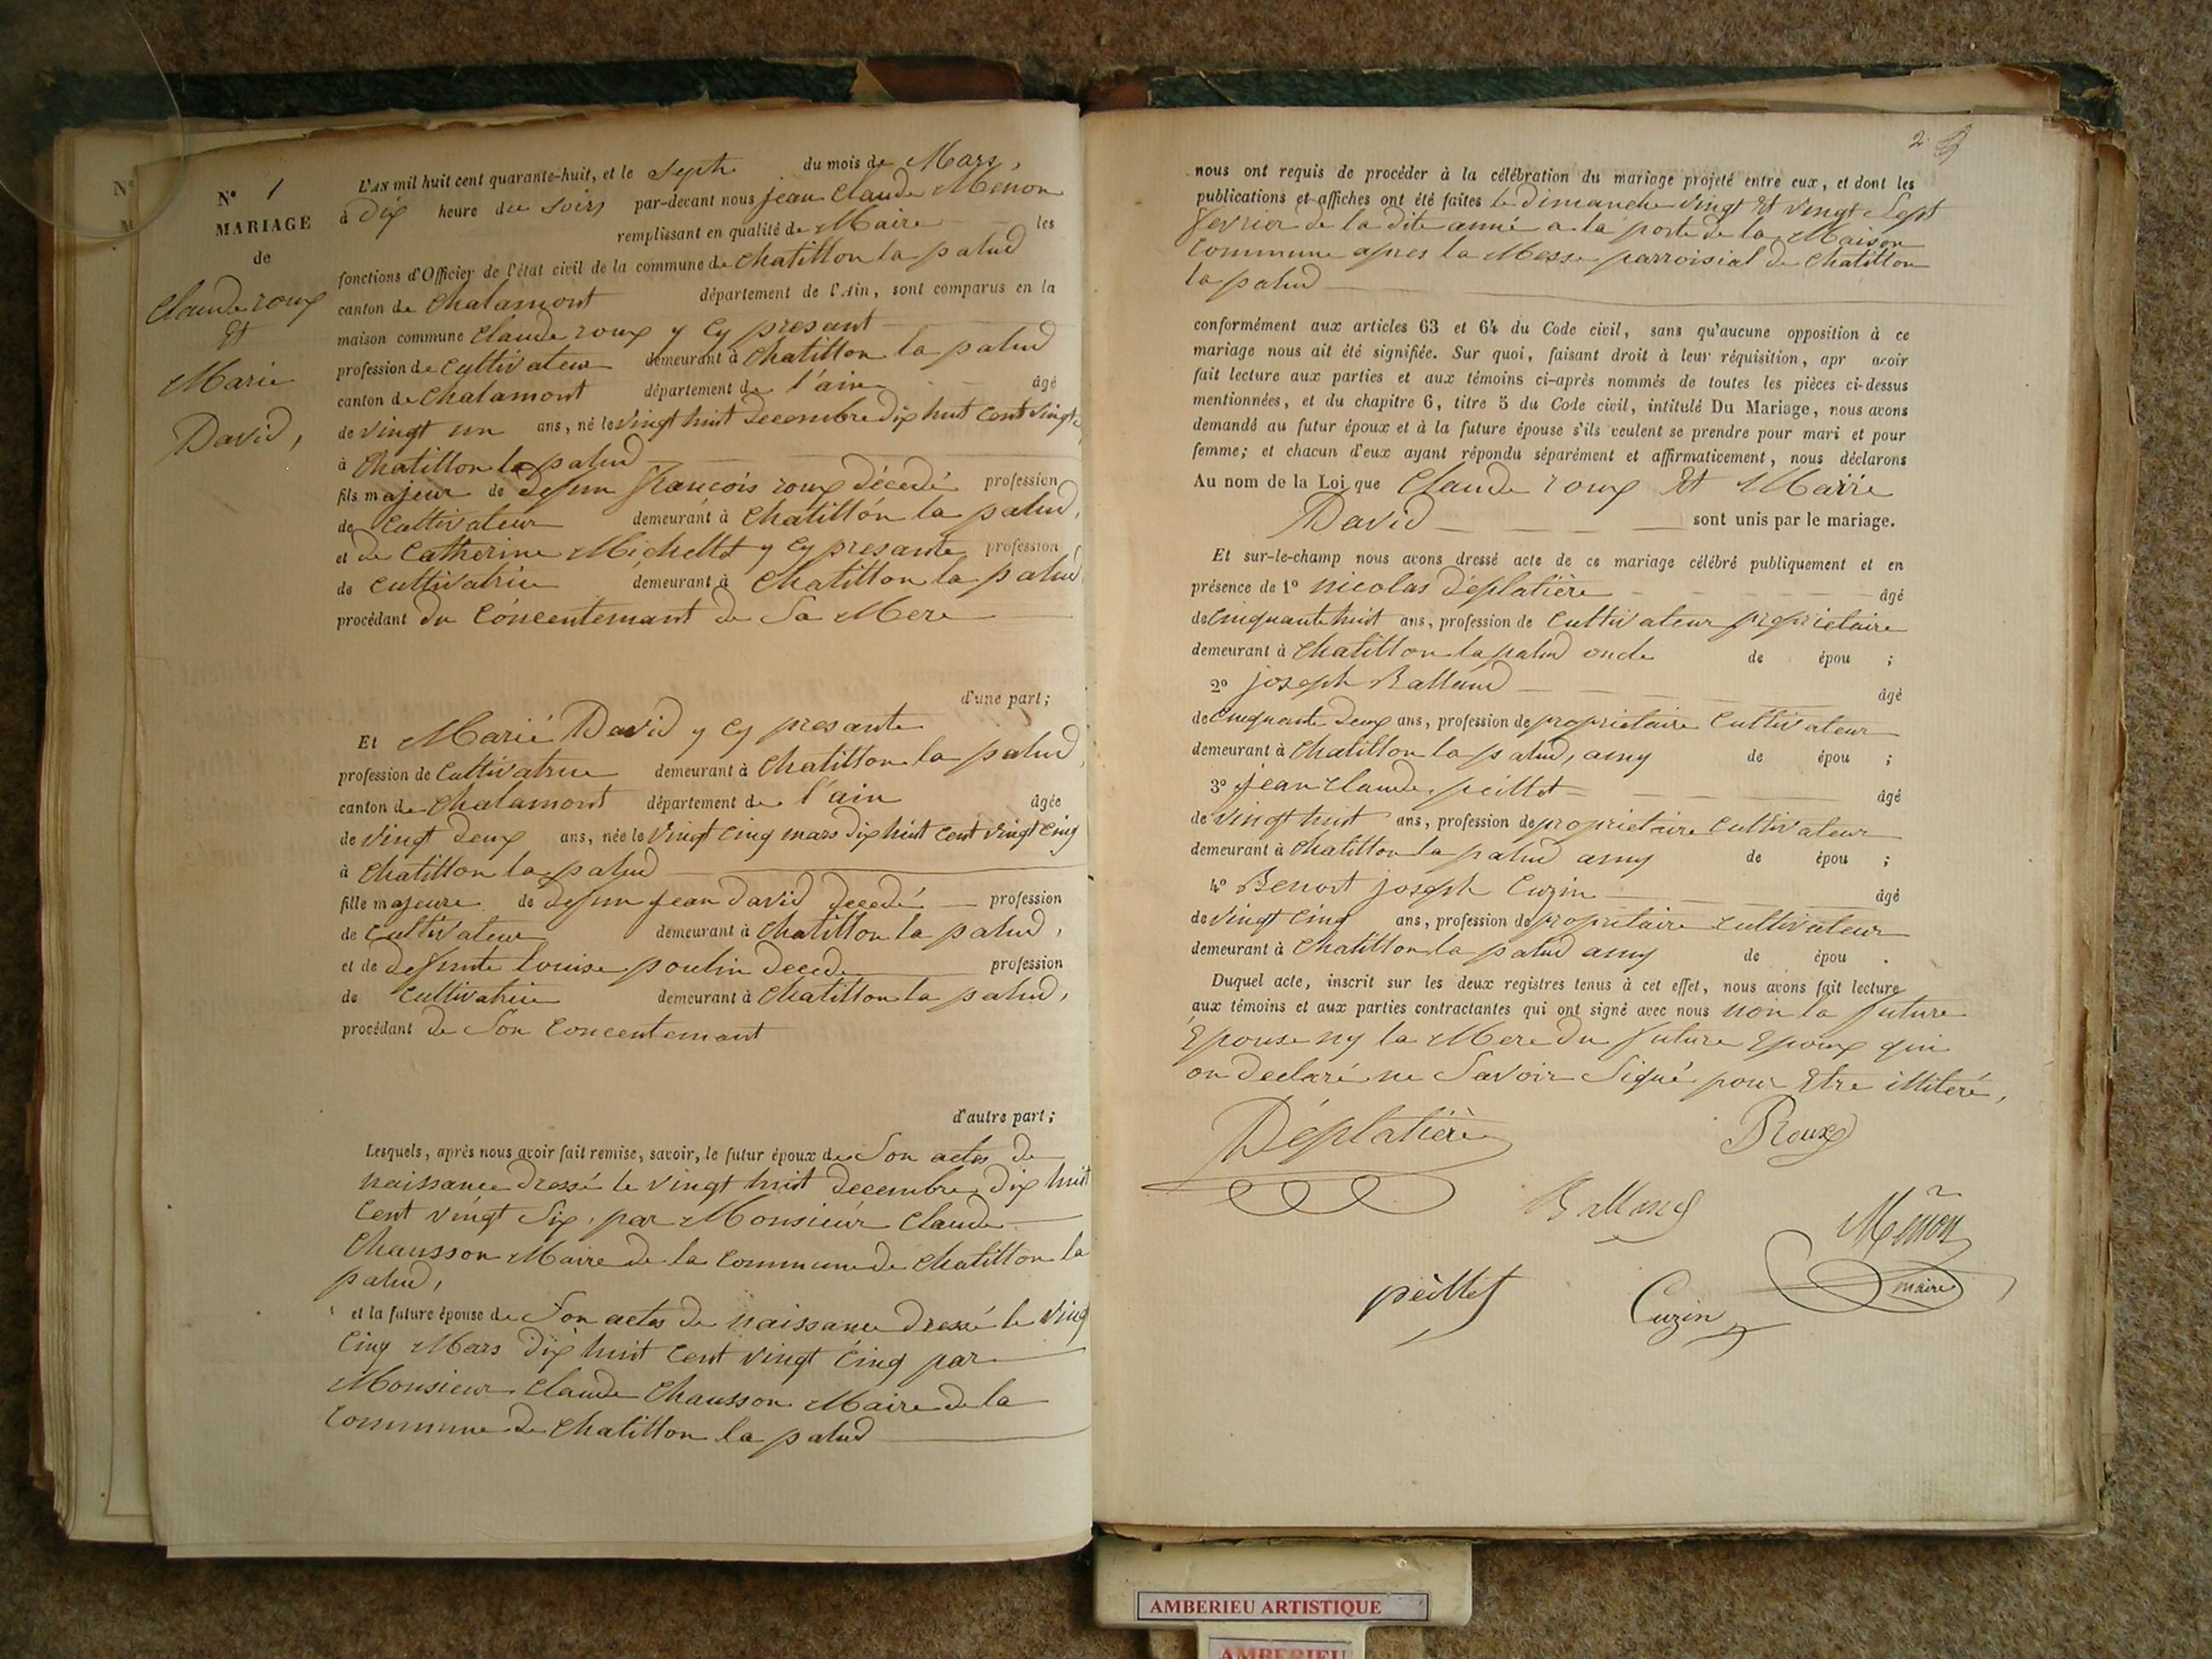 N° 1
MARIAGE
de
Claude roux
Et
Marie
David,
L'AN mil huit cent quarante-huit, et le Septe du mois de Mars,
à Dix heure du Soirs par-devant nous jean Claude Ménon
remplissant en qualité de Maire les
fonctions d'Officier de l'état civil de la commune de Chatillon la palud
canton de Chalamont département de l'Ain, sont comparus en la
maison commune Claude roux y Cy presant
profession de Cultivateur demeurant à Chatillon la palud
canton de Chalamont département de l'ain âgé
de vingt un ans, né le vingt huit Decembre Dix huit Cent vingt
à Chatillon la palud
fils majeur de defun francois roux Décedé profession
de Cultivateur demeurant à Chatillon la palud,
et de Catherine Michellet y Cy presante profession
de Cultivatrice demeurant à Chatillon la palud
procédant du Concentemant de Sa Mere
d'une part;
Et Marie David y Cy presante
profession de Cultivatrice demeurant à Chatillon la palud,
canton de Chalamont département de l'ain âgée
de vingt Deux ans, née le Vingt Cinq mars Dix huit Cent vingt Cinq
à Chatillon la palud
fille majeure de defun jean David Decedé profession
de Cultivateur demeurant à Chatillon la palud,
et de defunte Louise poulin Decede profession
de Cultivatrice demeurant à Chatillon la palud,
procédant de Son Concentemant
d'autre part;
Lesquels, après nous avoir fait remise, savoir, le futur époux de Son actes de
naissance Dressé le vingt huit Decembre Dix huit
Cent vingt Six, par Monsieur Claude
Chausson Maire de la Commune de Chatillon la
palud,
et la future épouse de Son actes de naissance Dressé le Vingt
Cinq Mars Dix huit Cent Vingt Cinq par
Monsieur Claude Chausson Maire de la
Commune de Chatillon la palud
2
nous ont requis de procéder à la célébration du mariage projeté entre eux, et dont les
publications et affiches ont été faites le Dimanche Vingt Et Vingt Sept
fevrier de la Dite anné a la porte de la Maison
Commune apres la Messe parroisial de Chatillon
la palud
conformément aux articles 63 et 64 du Code civil, sans qu'aucune opposition à ce
mariage nous ait été signifiée. Sur quoi, faisant droit à leur réquisition, apr avoir
fait lecture aux parties et aux témoins ci-après nommés de toutes les pièces ci-dessus
mentionnées, et du chapitre 6, titre 5 du Code civil, intitulé Du Mariage, nous avons
demandé au futur époux et à la future épouse s'ils veulent se prendre pour mari et pour
femme; et chacun d'eux ayant répondu séparément et affirmativement, nous déclarons
Au nom de la Loi que Claude roux Et Marie
David sont unis par le mariage.
Et sur-le-champ nous avons dressé acte de ce mariage célébré publiquement et en
présence de 1° nicolas Déplatière âgé
de Cinquante huit ans, profession de Cultivateur proprietaire
demeurant à Chatillon la palud oncle de épou ;
2° joseph Balland âgé
de Cinquante Deux ans, profession de proprietaire Cultivateur
demeurant à Chatillon la palud, amy de épou ;
3° jean Claude peillet âgé
de Vingt huit ans, profession de proprietaire Cultivateur
demeurant à Chatillon la palud amy de épou ;
4° Benoit joseph Cuzin âgé
de Vingt Cinq ans, profession de proprietaire cultivateur
demeurant à Chatillon la palud amy de épou .
Duquel acte, inscrit sur les deux registres tenus à cet effet, nous avons fait lecture
aux témoins et aux parties contractantes qui ont signé avec nous non la future
Epouse ny la Mere Du future Epoux qui
on Declaré ne Savoir Signé pour Etre illiteré,
Déplatière Roux
Balland
Ménon
maire
peillet Cuzin
AMBERIEU ARTISTIQUE
AMBERIEU